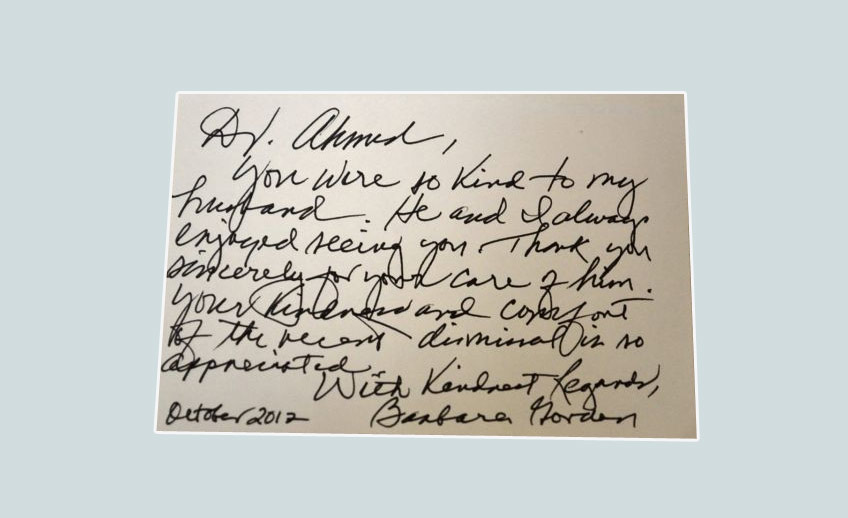 Dr. Ahmed,
You were so kind to my
husband. He and I always
enjoyed seeing you. Thank you
sincerely for your care of him.
Your kindness and comfort
of the recent dismissal is so
appreciated.
With Kindnest Regards,
October 2012 Barbara Gorden